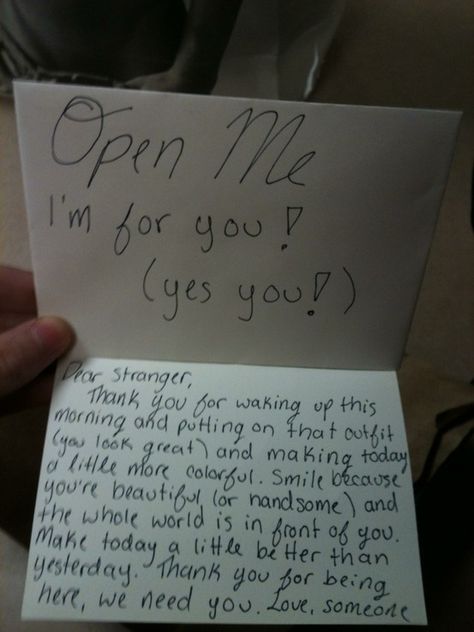 Open Me
I'm for you!
(yes you!)
Dear Stranger,
Thank you for waking up this
morning and putting on that outfit
(you look great) and making today
a little more colorful. Smile because
you're beautiful (or handsome) and
the whole world is in front of you.
Make today a little better than
yesterday. Thank you for being
here, we need you. Love, someone